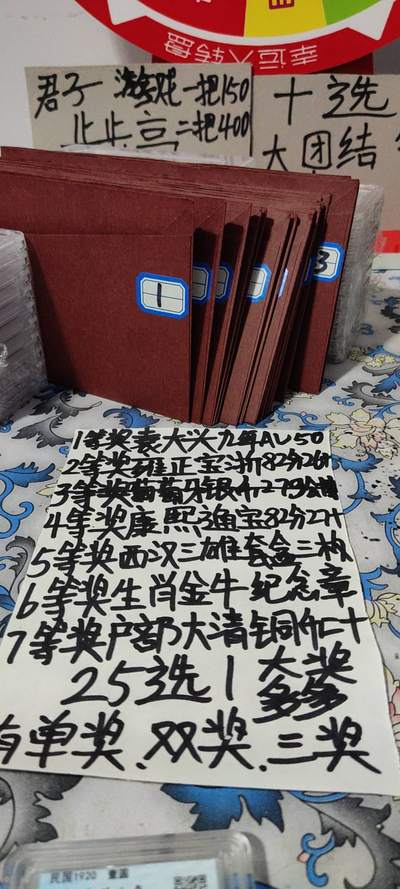 幸运大转盘
君子 游戏一把150
止止高二把400
十选
大团结
1
3
1等奖袁大头九年AU50
2等奖雍正宝浙82分26
3等奖葡萄牙银币27
4等奖康熙漁宝82分27
5等奖西汉三雄套盒三枚
6等奖生肖金牛纪念章
7等奖户部大清铜币二十
25选1 大奖多多
有单奖.双奖.三奖
民国1920 壹圆